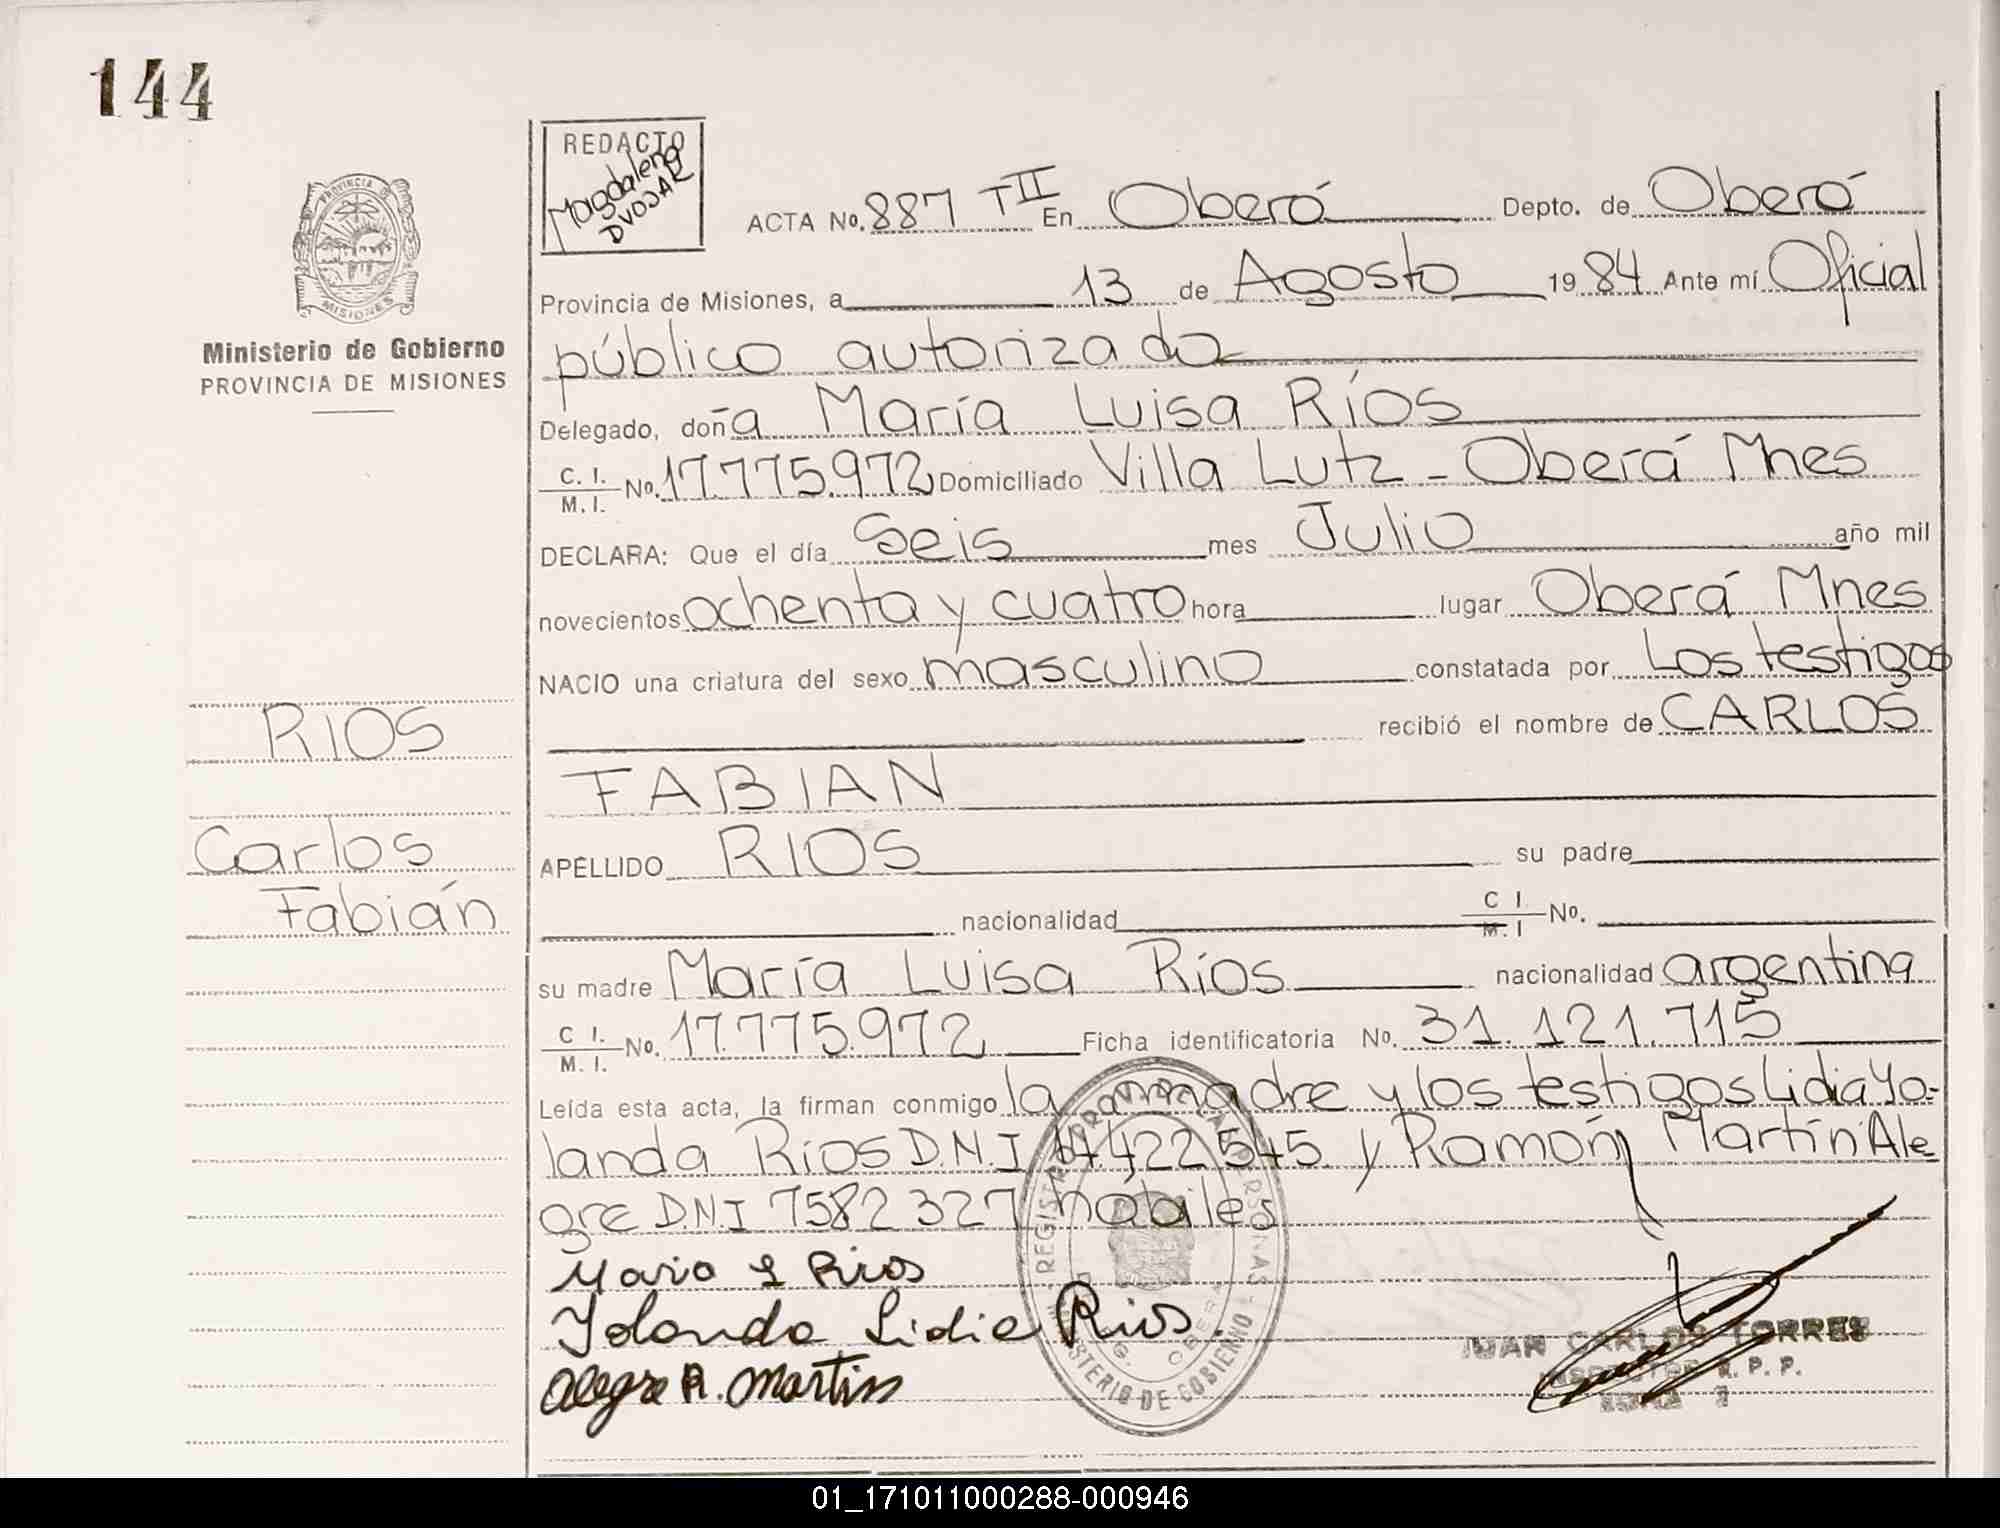 144
REDACTO
Magdalena
DVOJAK
PROVINCIA DE
MISIONES
Ministerio de Gobierno
PROVINCIA DE MISIONES
ACTA No. 887 TII En Oberá Depto. de Oberá
Provincia de Misiones, a 13 de Agosto 19 84 Ante mí Oficial
público autorizado
Delegado, doña María Luisa Ríos
C. I. M. I. No. 17.775.972 Domiciliado Villa Lutz - Oberá Mnes
DECLARA: Que el día Seis mes Julio año mil
novecientos ochenta y cuatro hora lugar Oberá Mnes
NACIO una criatura del sexo masculino constatada por Los testigos
recibió el nombre de CARLOS
FABIAN
RIOS
Carlos
Fabián
APELLIDO RIOS su padre
nacionalidad C I. M. I No.
su madre María Luisa Ríos nacionalidad argentina
C I. M. I. No. 17.775.972 Ficha identificatoria No. 31.121.715
Leída esta acta, la firman conmigo la madre y los testigos Lidia Yo-
landa Ríos D.N.I 14.422.545 y Ramón Martín Ale
gre D.N.I 7582 327 hábiles
Maria L Rios
Yolanda Lidia Rios.
Alegre R. Martin
JUAN CARLOS TORRES
R. P. P.
REGISTRO PROVINCIAL PERSONAS
MINISTERIO DE GOBIERNO
OBERA
01_171011000288-000946